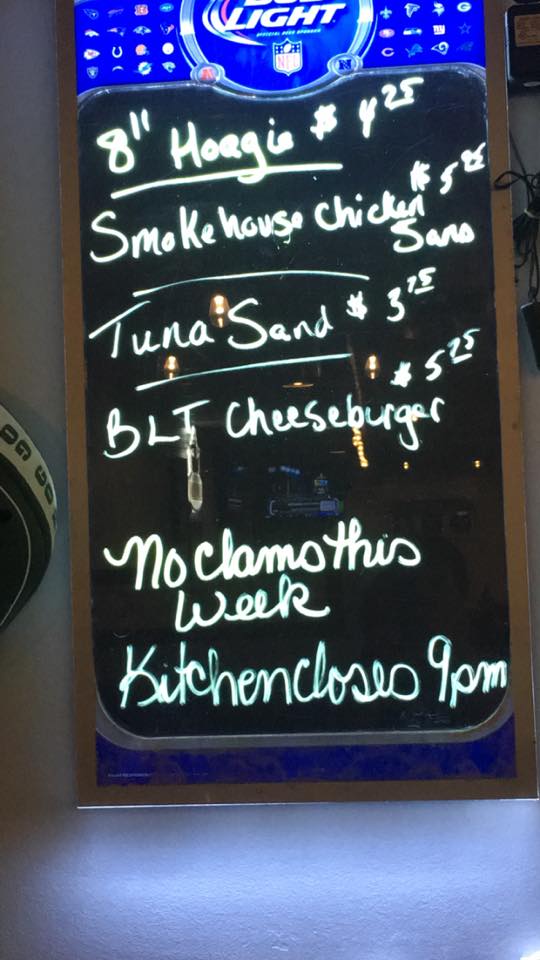 BUD
LIGHT
OFFICIAL BEER SPONSOR
NFL
8" Hoagie $ 4 25
Smokehouse Chicken $ 5 25
Sand
Tuna Sand $ 3 75
BLT Cheeseburger $ 5 25
No clams this
Week
Kitchen closes 9pm